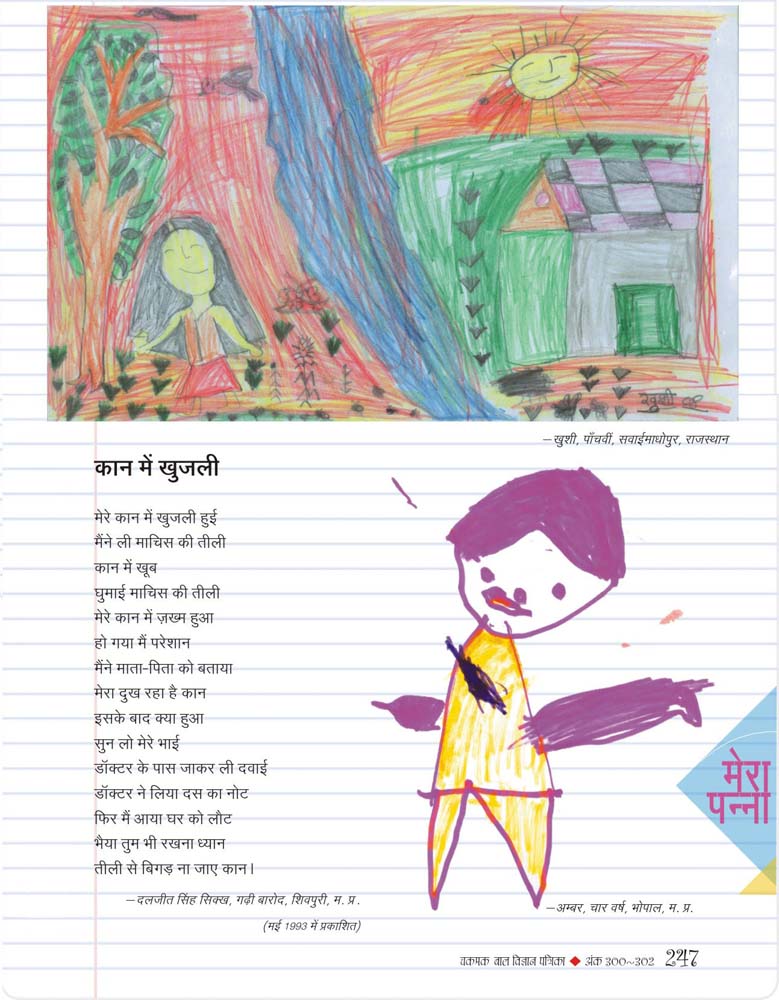 खुशी
—खुशी, पाँचवीं, सवाईमाधोपुर, राजस्थान
कान में खुजली
मेरे कान में खुजली हुई
मैंने ली माचिस की तीली
कान में खूब
घुमाई माचिस की तीली
मेरे कान में ज़ख्म हुआ
हो गया मैं परेशान
मैंने माता-पिता को बताया
मेरा दुख रहा है कान
इसके बाद क्या हुआ
सुन लो मेरे भाई
डॉक्टर के पास जाकर ली दवाई
डॉक्टर ने लिया दस का नोट
फिर मैं आया घर को लौट
भैया तुम भी रखना ध्यान
तीली से बिगड़ ना जाए कान।
—दलजीत सिंह सिक्ख, गढ़ी बारोद, शिवपुरी, म. प्र.
(मई 1993 में प्रकाशित)
—अम्बर, चार वर्ष, भोपाल, म. प्र.
मेरा
पन्ना
चकमक बाल विज्ञान पत्रिका ◆ अंक 300~302 247